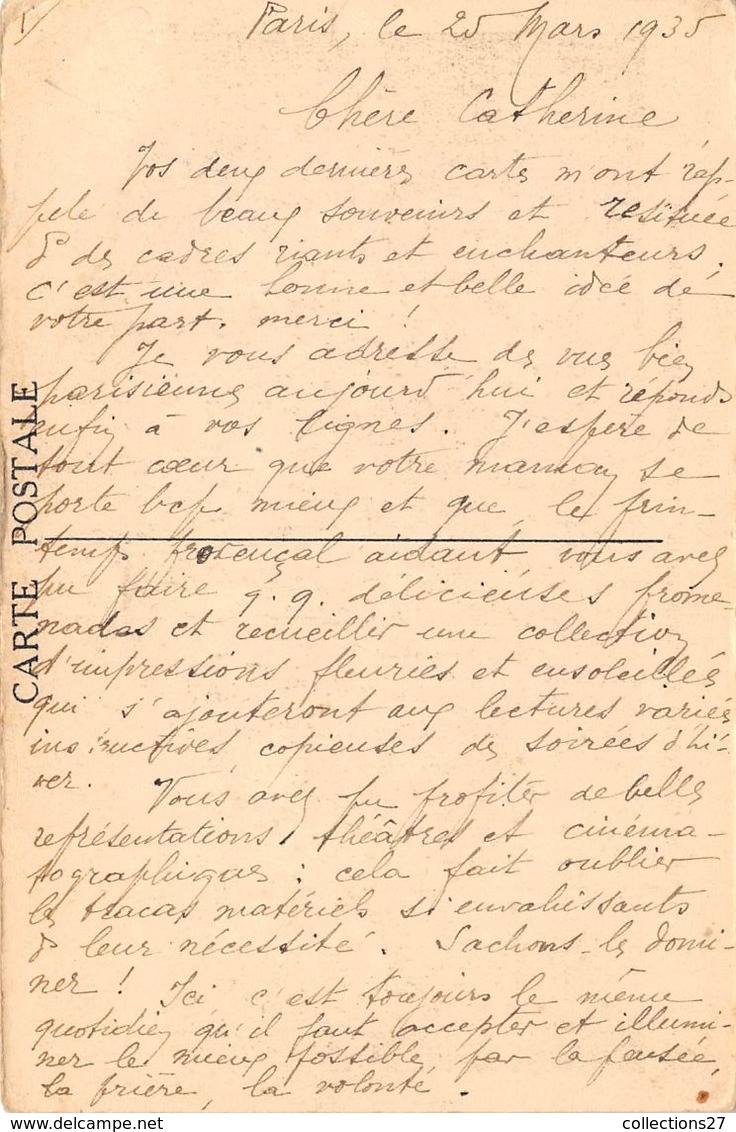 Paris, le 25 Mars 1935
Chère Catherine
Vos deux dernières cartes m'ont rap-
pelé de beaux souvenirs et resituée
ds des cadres riants et enchanteurs.
c'est une bonne et belle idée de
votre part. merci !
Je vous adresse des vues bien
parisiennes aujourd'hui et réponds
enfin à vos lignes. J'espère de
tout cœur que votre maman se
porte bcp mieux et que, le prin-
temps provençal aidant, vous avez
pu faire q.q. délicieuses prome
nades et recueillir une collection
d'impressions fleuries et ensoleillées
qui s'ajouteront aux lectures variées
instructives, copieuses des soirées d'hi-
ver. Vous avez pu profiter de belles
représentations théâtres et cinéma-
tographiques : cela fait oublier
les tracas matériels si envahissants
ds leur nécessité. Sachons-les domi-
ner ! Ici c'est toujours le même
quotidien qu'il faut accepter et illumi-
ner le mieux possible par la pensée,
la prière, la volonté.
CARTE POSTALE
collections27